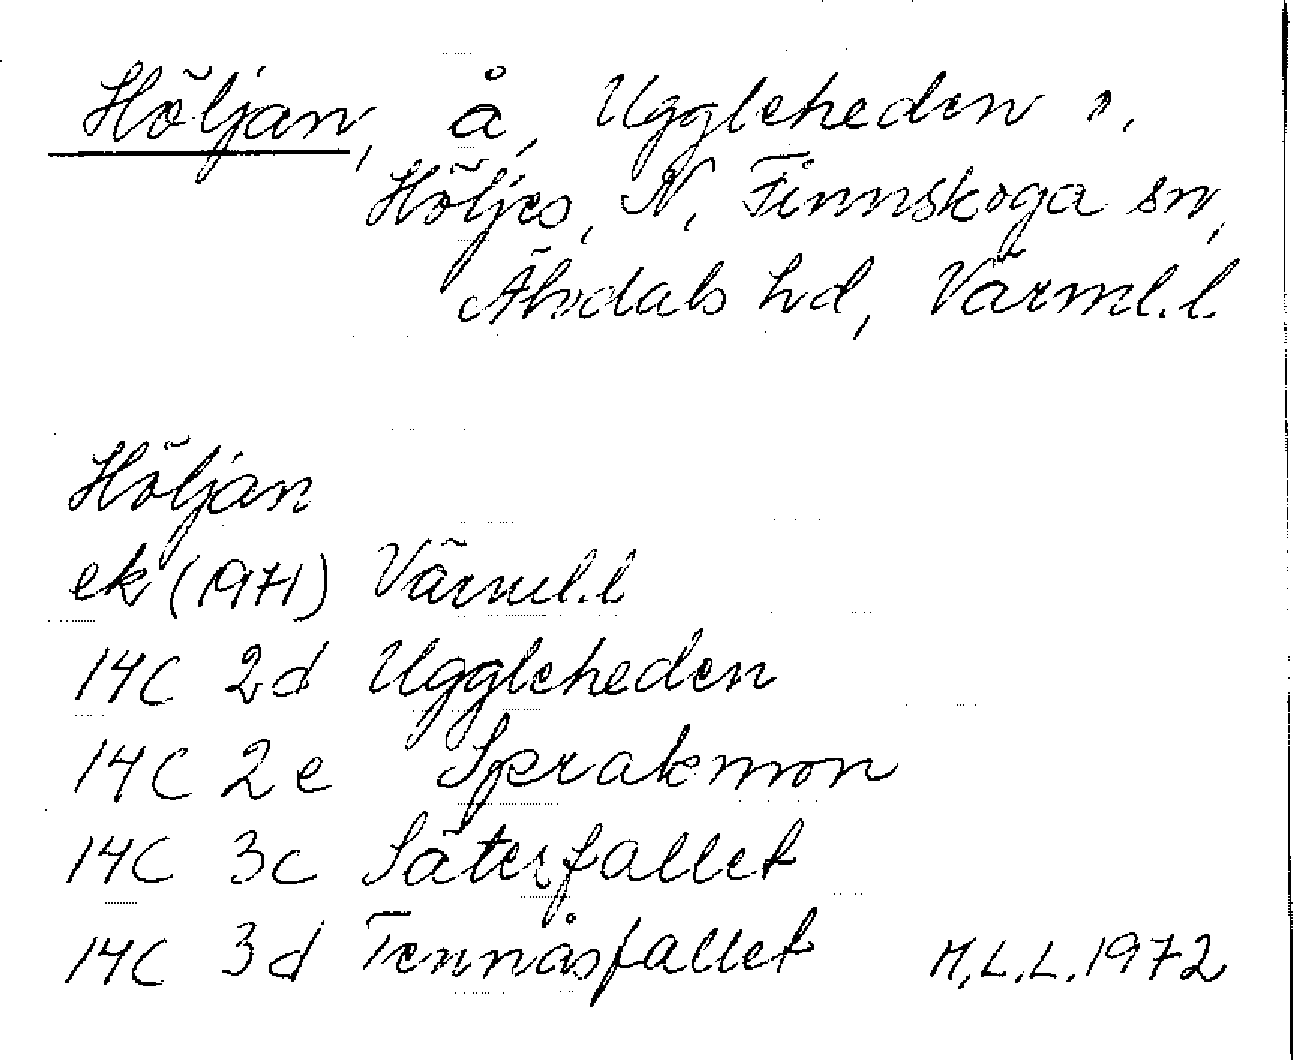 Höljan, å, Uggleheden o.
Höljes, N. Finnskoga sn,
Älvdals hd, Värml.l.
Höljan
ek (1971) Värml.l
14C 2d Uggleheden
14C 2e Sprakmon
14C 3c Säterfallet
14C 3d Tennåsfallet M.L.L. 1972